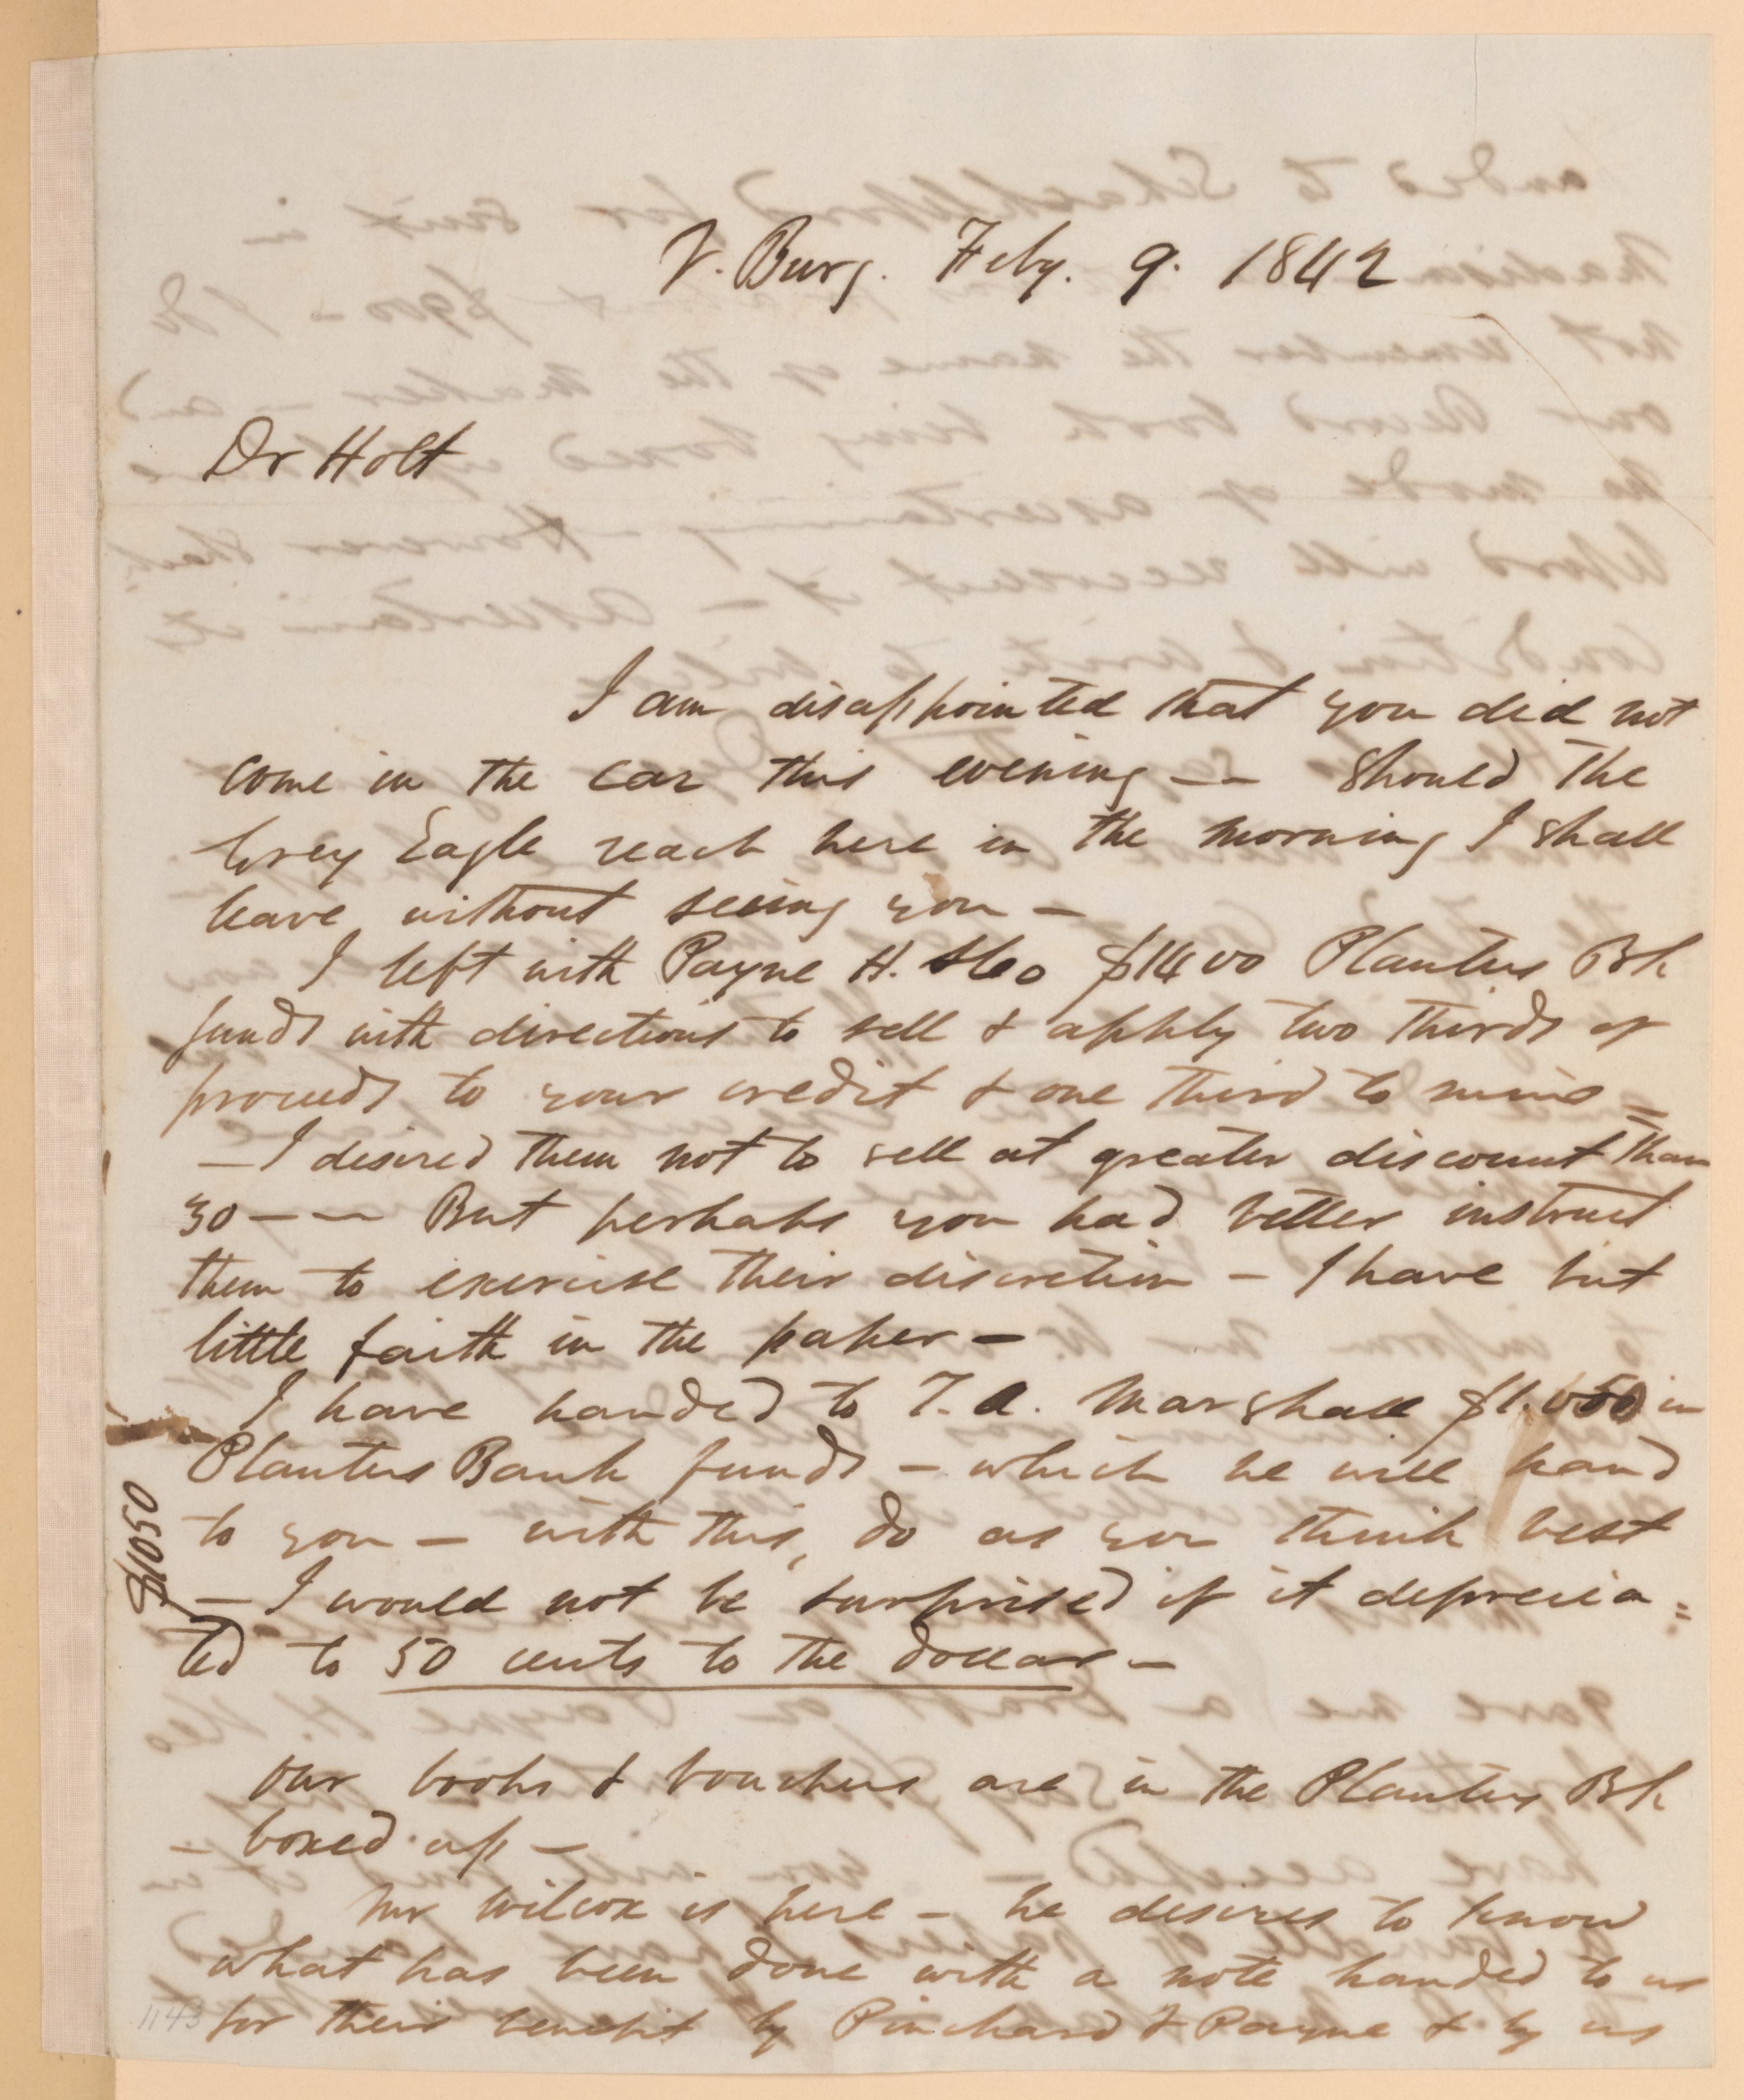 V. Burg. Feby. 9. 1842
Dr Holt
I am disappointed that you did not
come in the car this evening — — Should the
Grey Eagle reach here in the morning I shall
leave without seeing you —
I left with Payne H. &Co $1400 Planters Bk
funds with directions to sell & apply two thirds of
proceeds to your credit & one third to mine =
— I desired them not to sell at greater discount than
30 — — But perhaps you had better instruct
them to exercise their discretion — I have but
little faith in the paper —
I have handed to T. A. Marshall $1.050 in
Planters Bank funds — which he will hand
to you — with this, do as you think best
$1050
— I would not be surprised if it deprecia=
ted to 50 cents to the dollar —
Our books & vouchers are in the Planters Bk
— boxed up —
Mr Wilcox is here — he desires to know
what has been done with a note handed to us
for their benefit by Pinchard & Payne & by us
1143